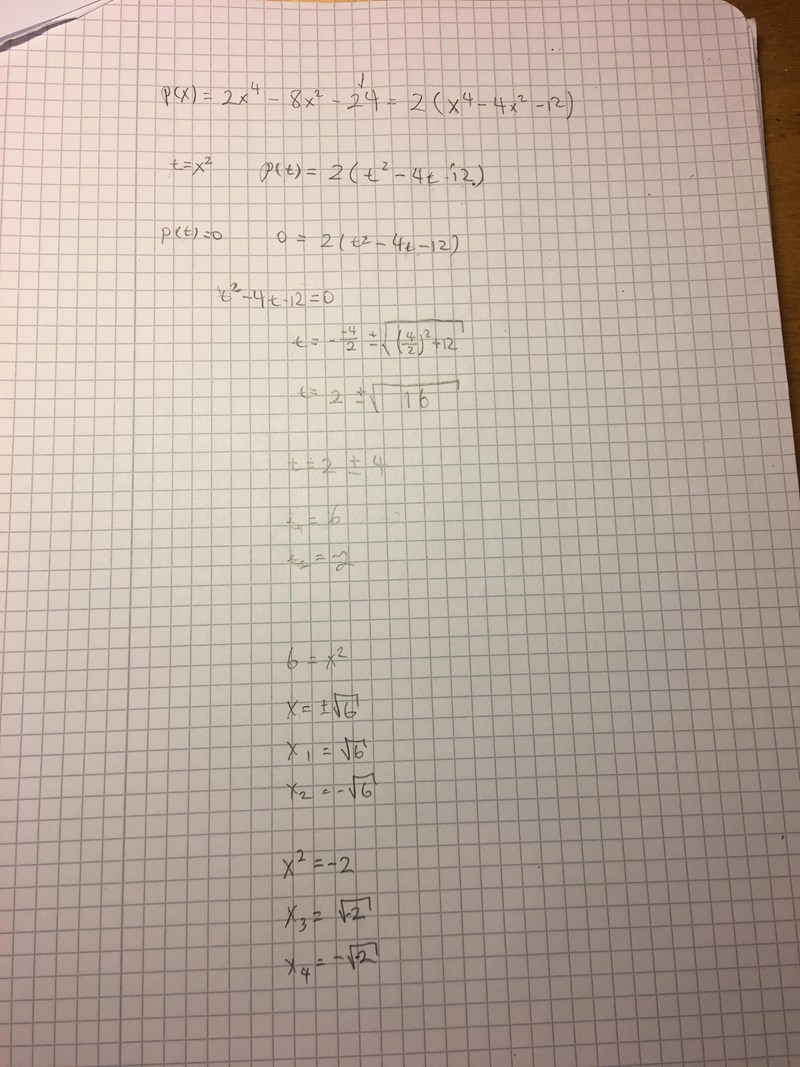 p(x) = 2x⁴ - 8x² - 24 = 2(x⁴ - 4x² - 12)
t=x² p(t) = 2(t² - 4t - 12)
p(t)=0 0 = 2(t² - 4t - 12)
t² - 4t - 12 = 0
t = - -4/2 ± √((4/2)² + 12)
t = 2 ± √16
t = 2 ± 4
t₁ = 6
t₂ = -2
6 = x²
x = ±√6
x₁ = √6
x₂ = -√6
x² = -2
x₃ = √-2
x₄ = -√-2